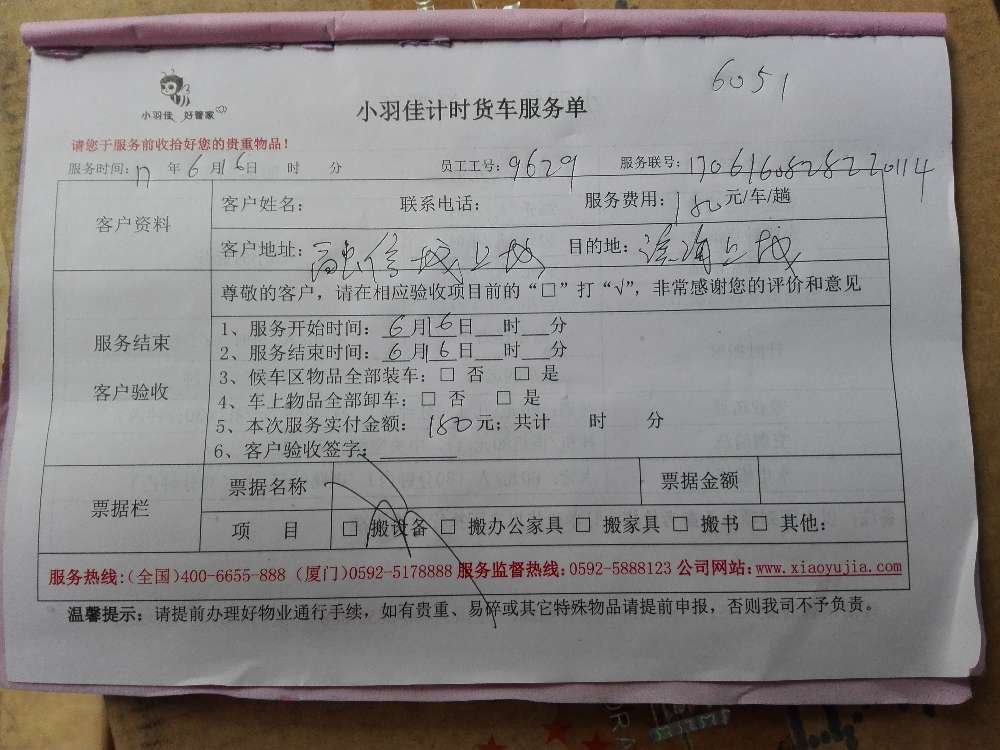 6051
小羽佳 好管家
小羽佳计时货车服务单
请您于服务前收拾好您的贵重物品！
服务时间：17 年 6 月 16 日 时 分 员工工号：9629 服务联号：17061608282220114
客户资料
客户姓名： 联系电话： 服务费用：180元/车/趟
客户地址：融信城上城 目的地：上城
尊敬的客户，请在相应验收项目前的“□”打“√”，非常感谢您的评价和意见
服务结束
客户验收
1、服务开始时间：6月16日___时___分
2、服务结束时间：6月16日___时___分
3、候车区物品全部装车：□ 否 □ 是
4、车上物品全部卸车：□ 否 □ 是
5、本次服务实付金额：180元；共计 时 分
6、客户验收签字：
票据栏
票据名称 票据金额
项 目 □ 搬设备 □ 搬办公家具 □ 搬家具 □ 搬书 □ 其他：
服务热线:(全国)400-6655-888 (厦门)0592-5178888 服务监督热线:0592-5888123 公司网站:www.xiaoyujia.com
温馨提示：请提前办理好物业通行手续，如有贵重、易碎或其它特殊物品请提前申报，否则我司不予负责。